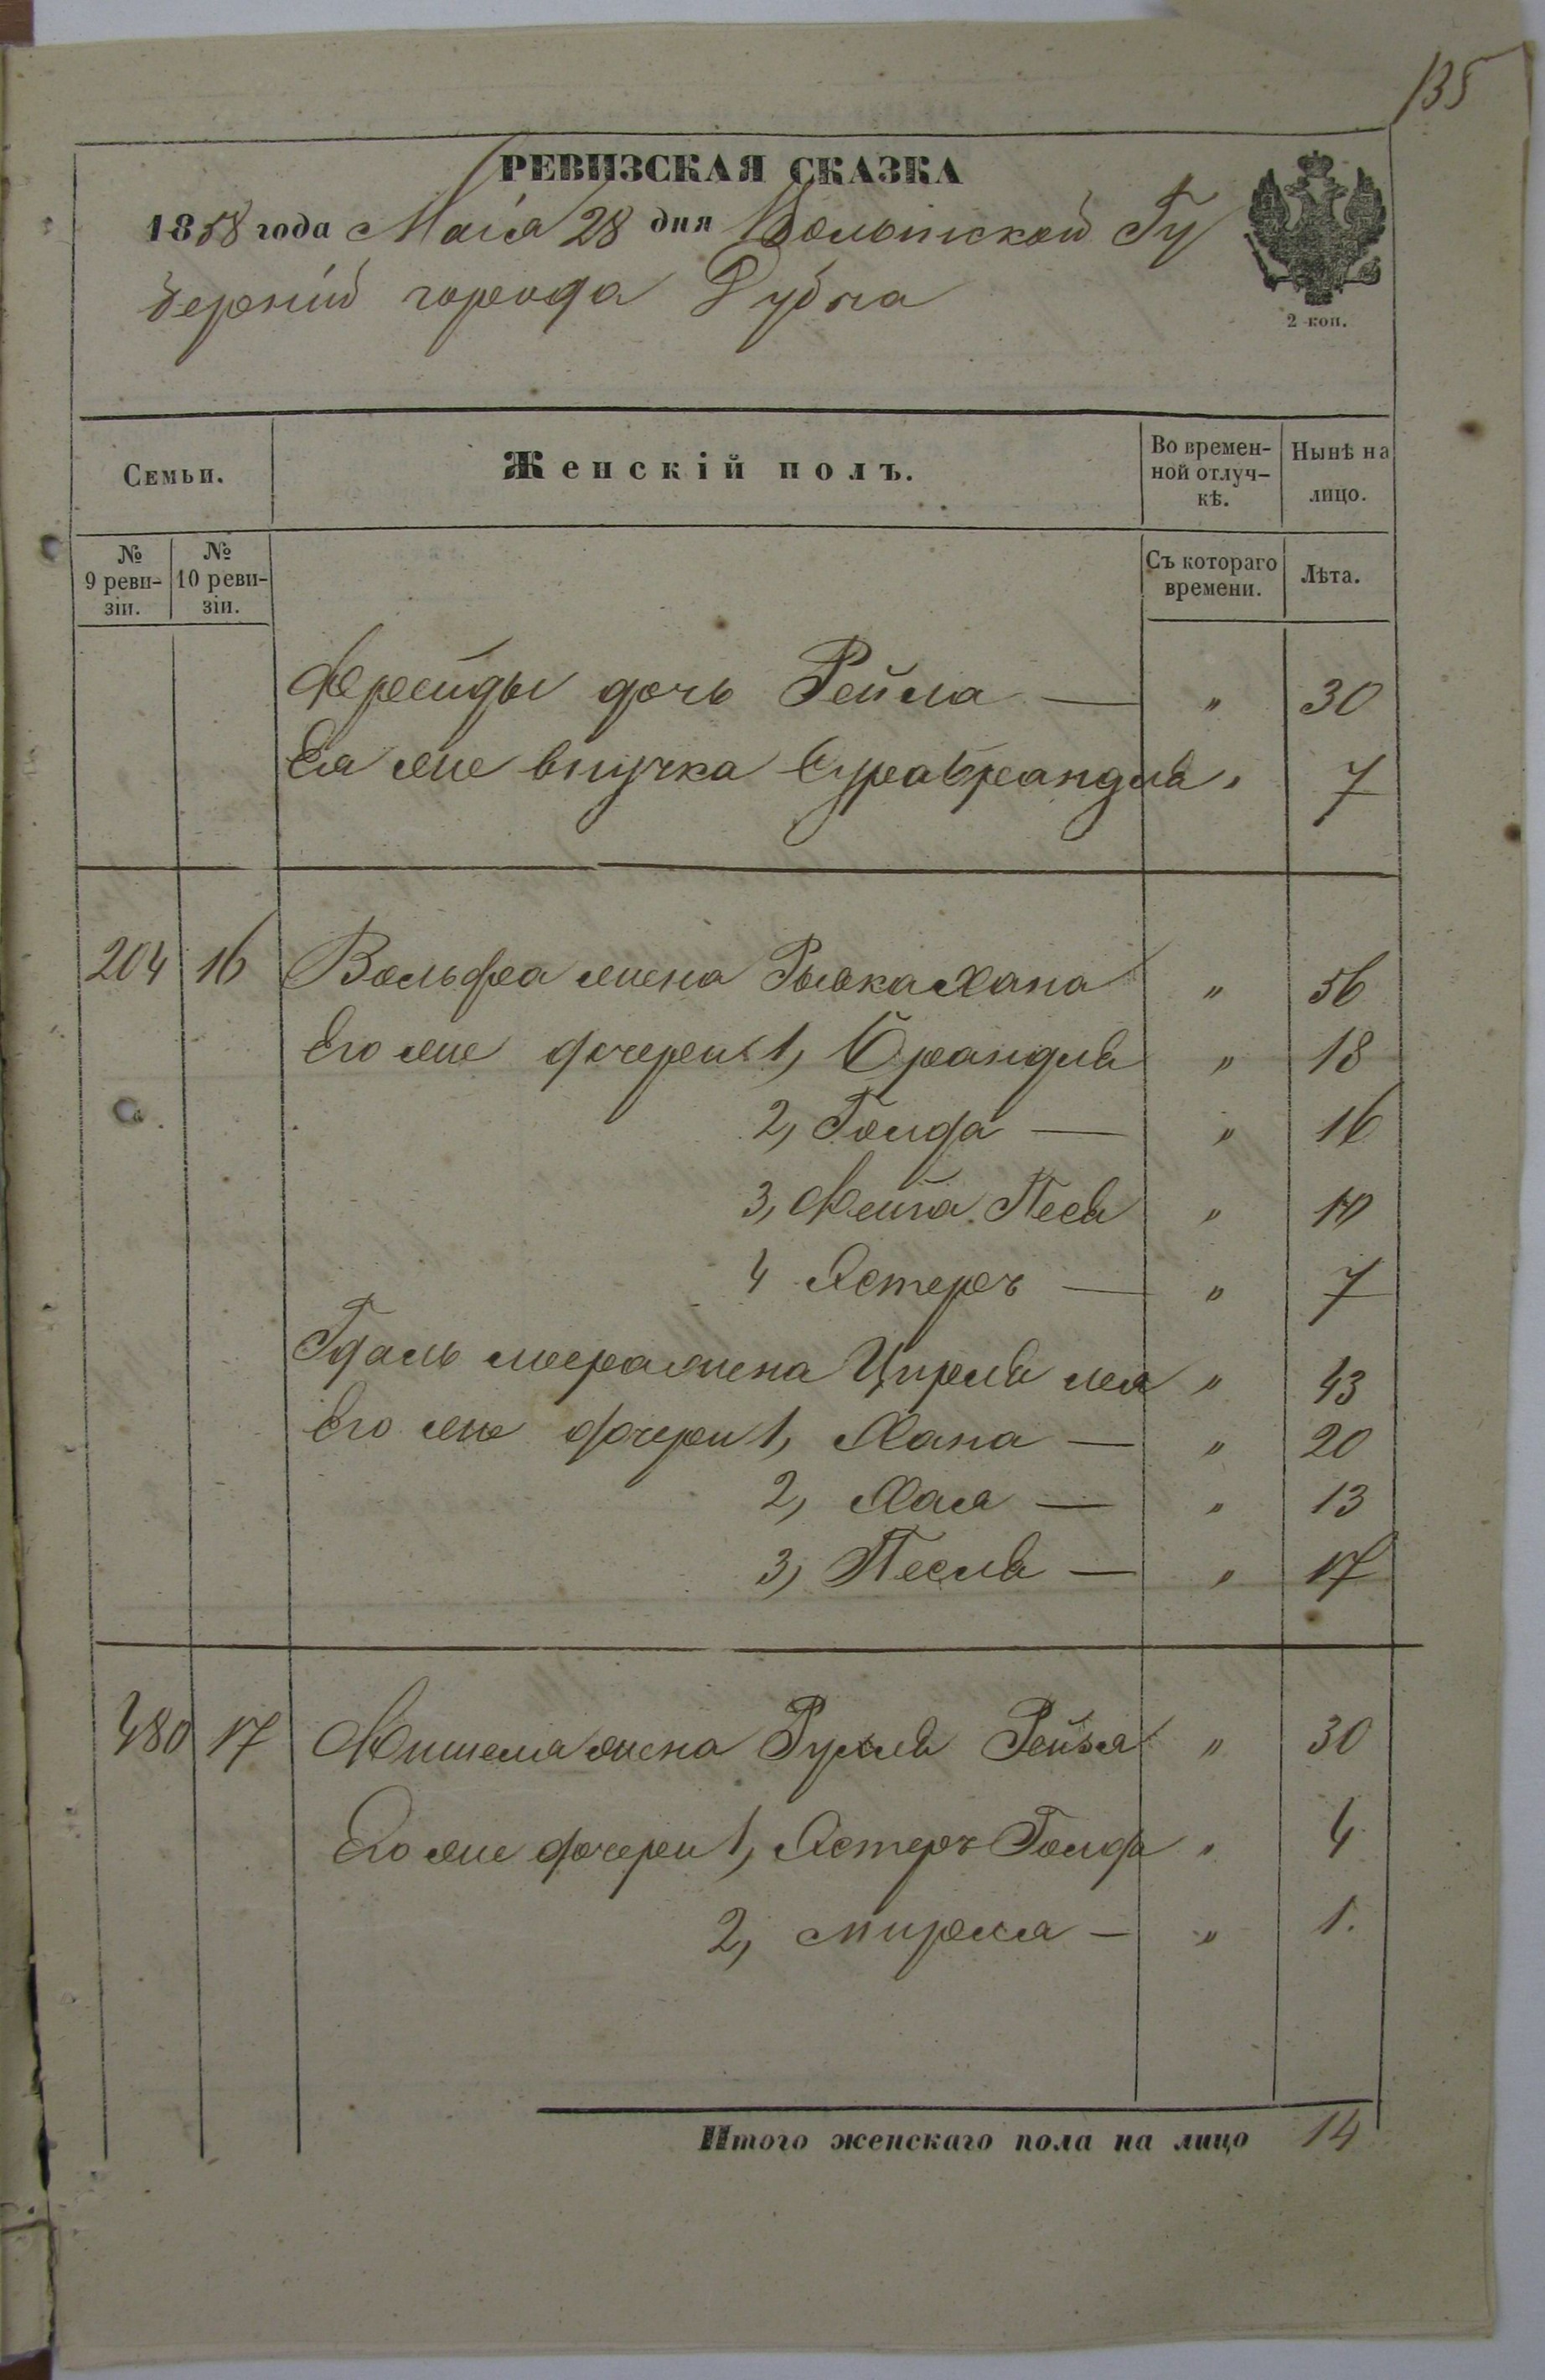 135
РЕВИЗСКАЯ СКАЗКА
1858 года Маія 28 дня Волынской Гу
берніи города Дубна
2 коп.
Семьи. Женскій полъ. Во времен- Нынѣ на
ной отлуч- лицо.
кѣ.
№ № Съ котораго Лѣта.
9 реви- 10 реви- времени.
зіи. зіи.
Фрейды дочь Рейла — " 30
Ея же внучка Сура Брандля " 7
204 16 Вольфа жена Рывка Хана " 56
Его же дочери 1, Брандля " 18
2, Голда — " 16
3, Фейга Песя " 10
4 Эстеръ — " 7
Гдаль меера жена Цирля лея " 43
Его же дочери 1, Хана — " 20
2, Хая — " 13
3, Песля — " 17
480 17 Фишеля жена Рухля Рейзя " 30
Его же дочери 1, Эстеръ Голда " 4
2, мирля — " 1.
Итого женскаго пола на лицо 14